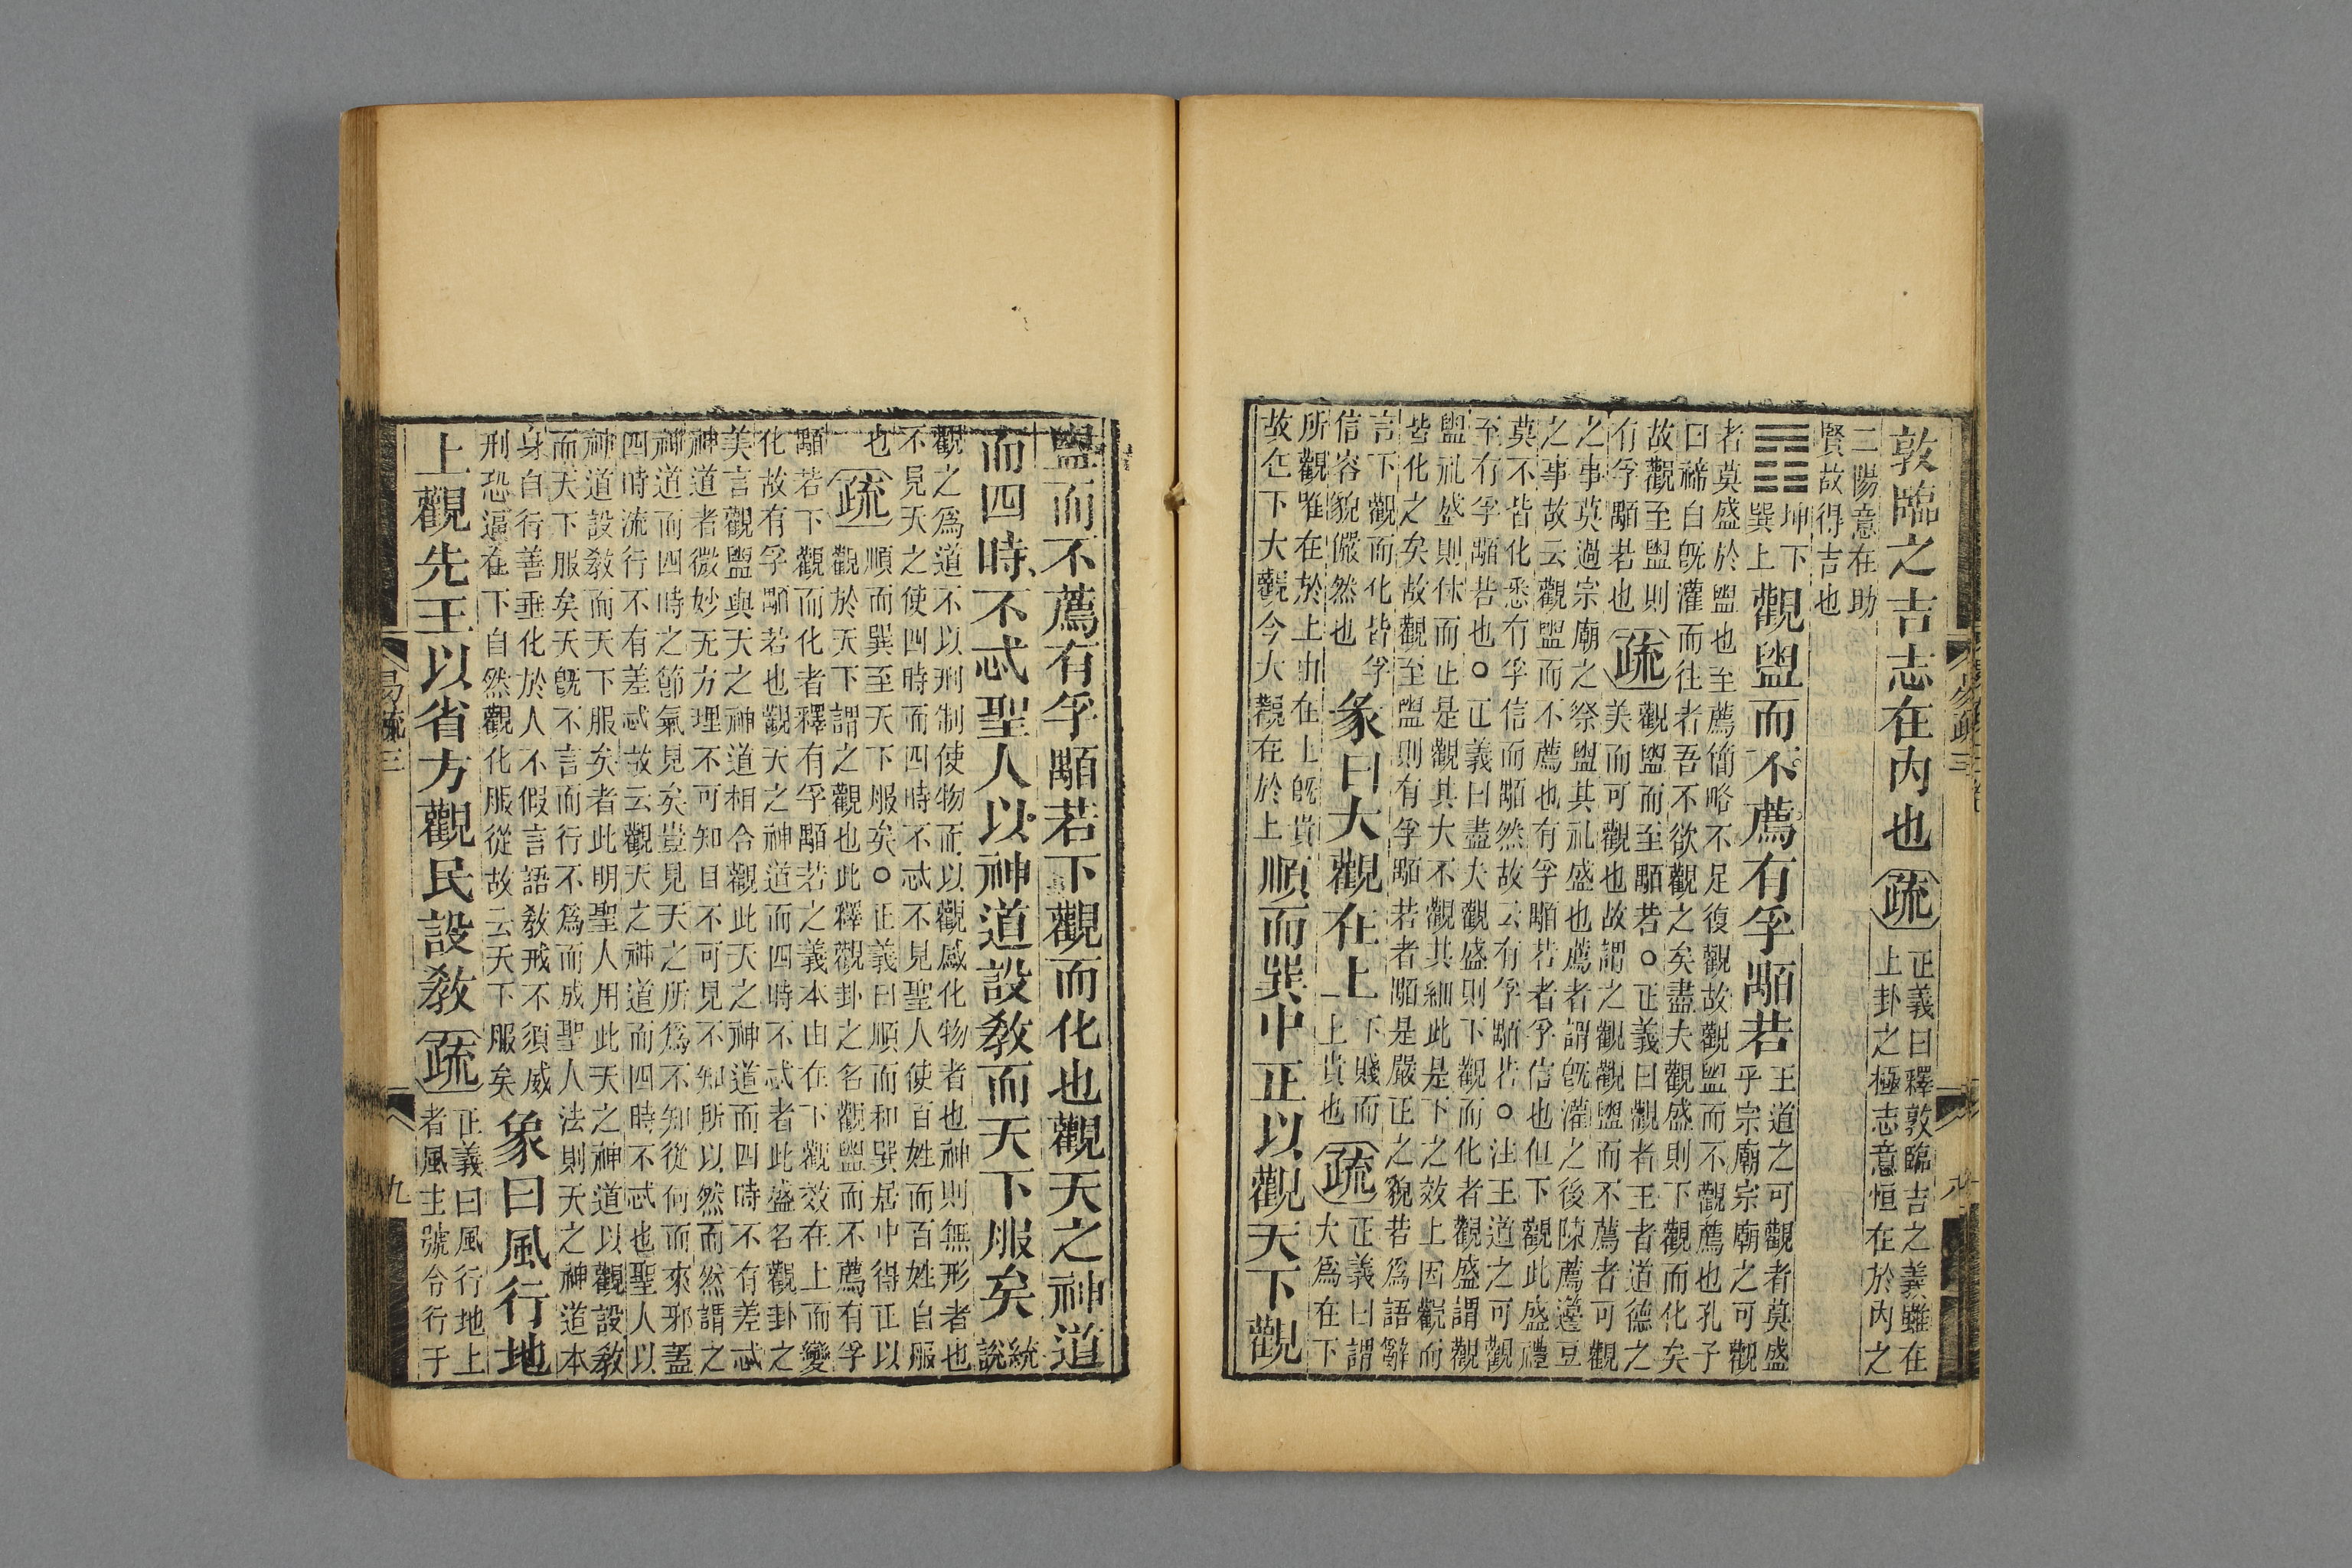 敦臨之吉志在内也疏正義曰釋敦臨吉之義雖在
上卦之極志意恒在於内之
二陽意在助
賢故得吉也
䷓坤下
巽上觀盥而不薦有孚顒若王道之可觀者莫盛
乎宗廟宗廟之可觀
者莫盛於盥也至薦簡略不足復觀故觀盥而不觀薦也孔子
曰禘自旣灌而往者吾不欲觀之矣盡夫觀盛則下觀而化矣
故觀至盥則
有孚顒若也疏觀盥而至顒若○正義曰觀者王者道德之
美而可觀也故謂之觀觀盥而不薦者可觀
之事莫過宗廟之祭盥其礼盛也薦者謂旣灌之後陳薦籩豆
之事故云觀盥而不薦也有孚顒若者孚信也但下觀此盛禮
莫不皆化悉有孚信而顒然故云有孚顒若○注王道之可觀
至有孚顒若也○正義曰盡夫觀盛則下觀而化者觀盛謂觀
盥礼盛則休而止是觀其大不觀其細此是下之效上因觀而
皆化之矣故觀至盥則有孚顒若者顒是嚴正之貌若爲語辭
言下觀而化皆孚
信容貌儼然也彖曰大觀在上下賤而
上貴也疏正義曰謂
大爲在下
所觀唯在於上由在上旣貴
故在下大觀今大觀在於上順而巽中正以觀天下觀
易疏三
盥而不薦有孚顒若下觀而化也觀天之神道
而四時不忒聖人以神道設敎而天下服矣統
說
觀之爲道不以刑制使物而以觀感化物者也神則無形者也
不見天之使四時而四時不忒不見聖人使百姓而百姓自服
也疏順而巽至天下服矣○正義曰順而和巽居中得正以
觀於天下謂之觀也此釋觀卦之名觀盥而不薦有孚
顒若下觀而化者釋有孚顒若之義本由在下觀效在上而變
化故有孚顒若也觀天之神道而四時不忒者此盛名觀卦之
美言觀盥與天之神道相合觀此天之神道而四時不有差忒
神道者微妙无方理不可知目不可見不知所以然而然謂之
神道而四時之節氣見矣豈見天之所爲不知從何而來邪蓋
四時流行不有差忒故云觀天之神道而四時不忒也聖人以
神道設敎而天下服矣者此明聖人用此天之神道以觀設敎
而天下服矣天旣不言而行不爲而成聖人法則天之神道本
身自行善垂化於人不假言語敎戒不須威
刑恐逼在下自然觀化服從故云天下服矣象曰風行地
上觀先王以省方觀民設敎疏正義曰風行地上
者風主號令行于
易疏三
九